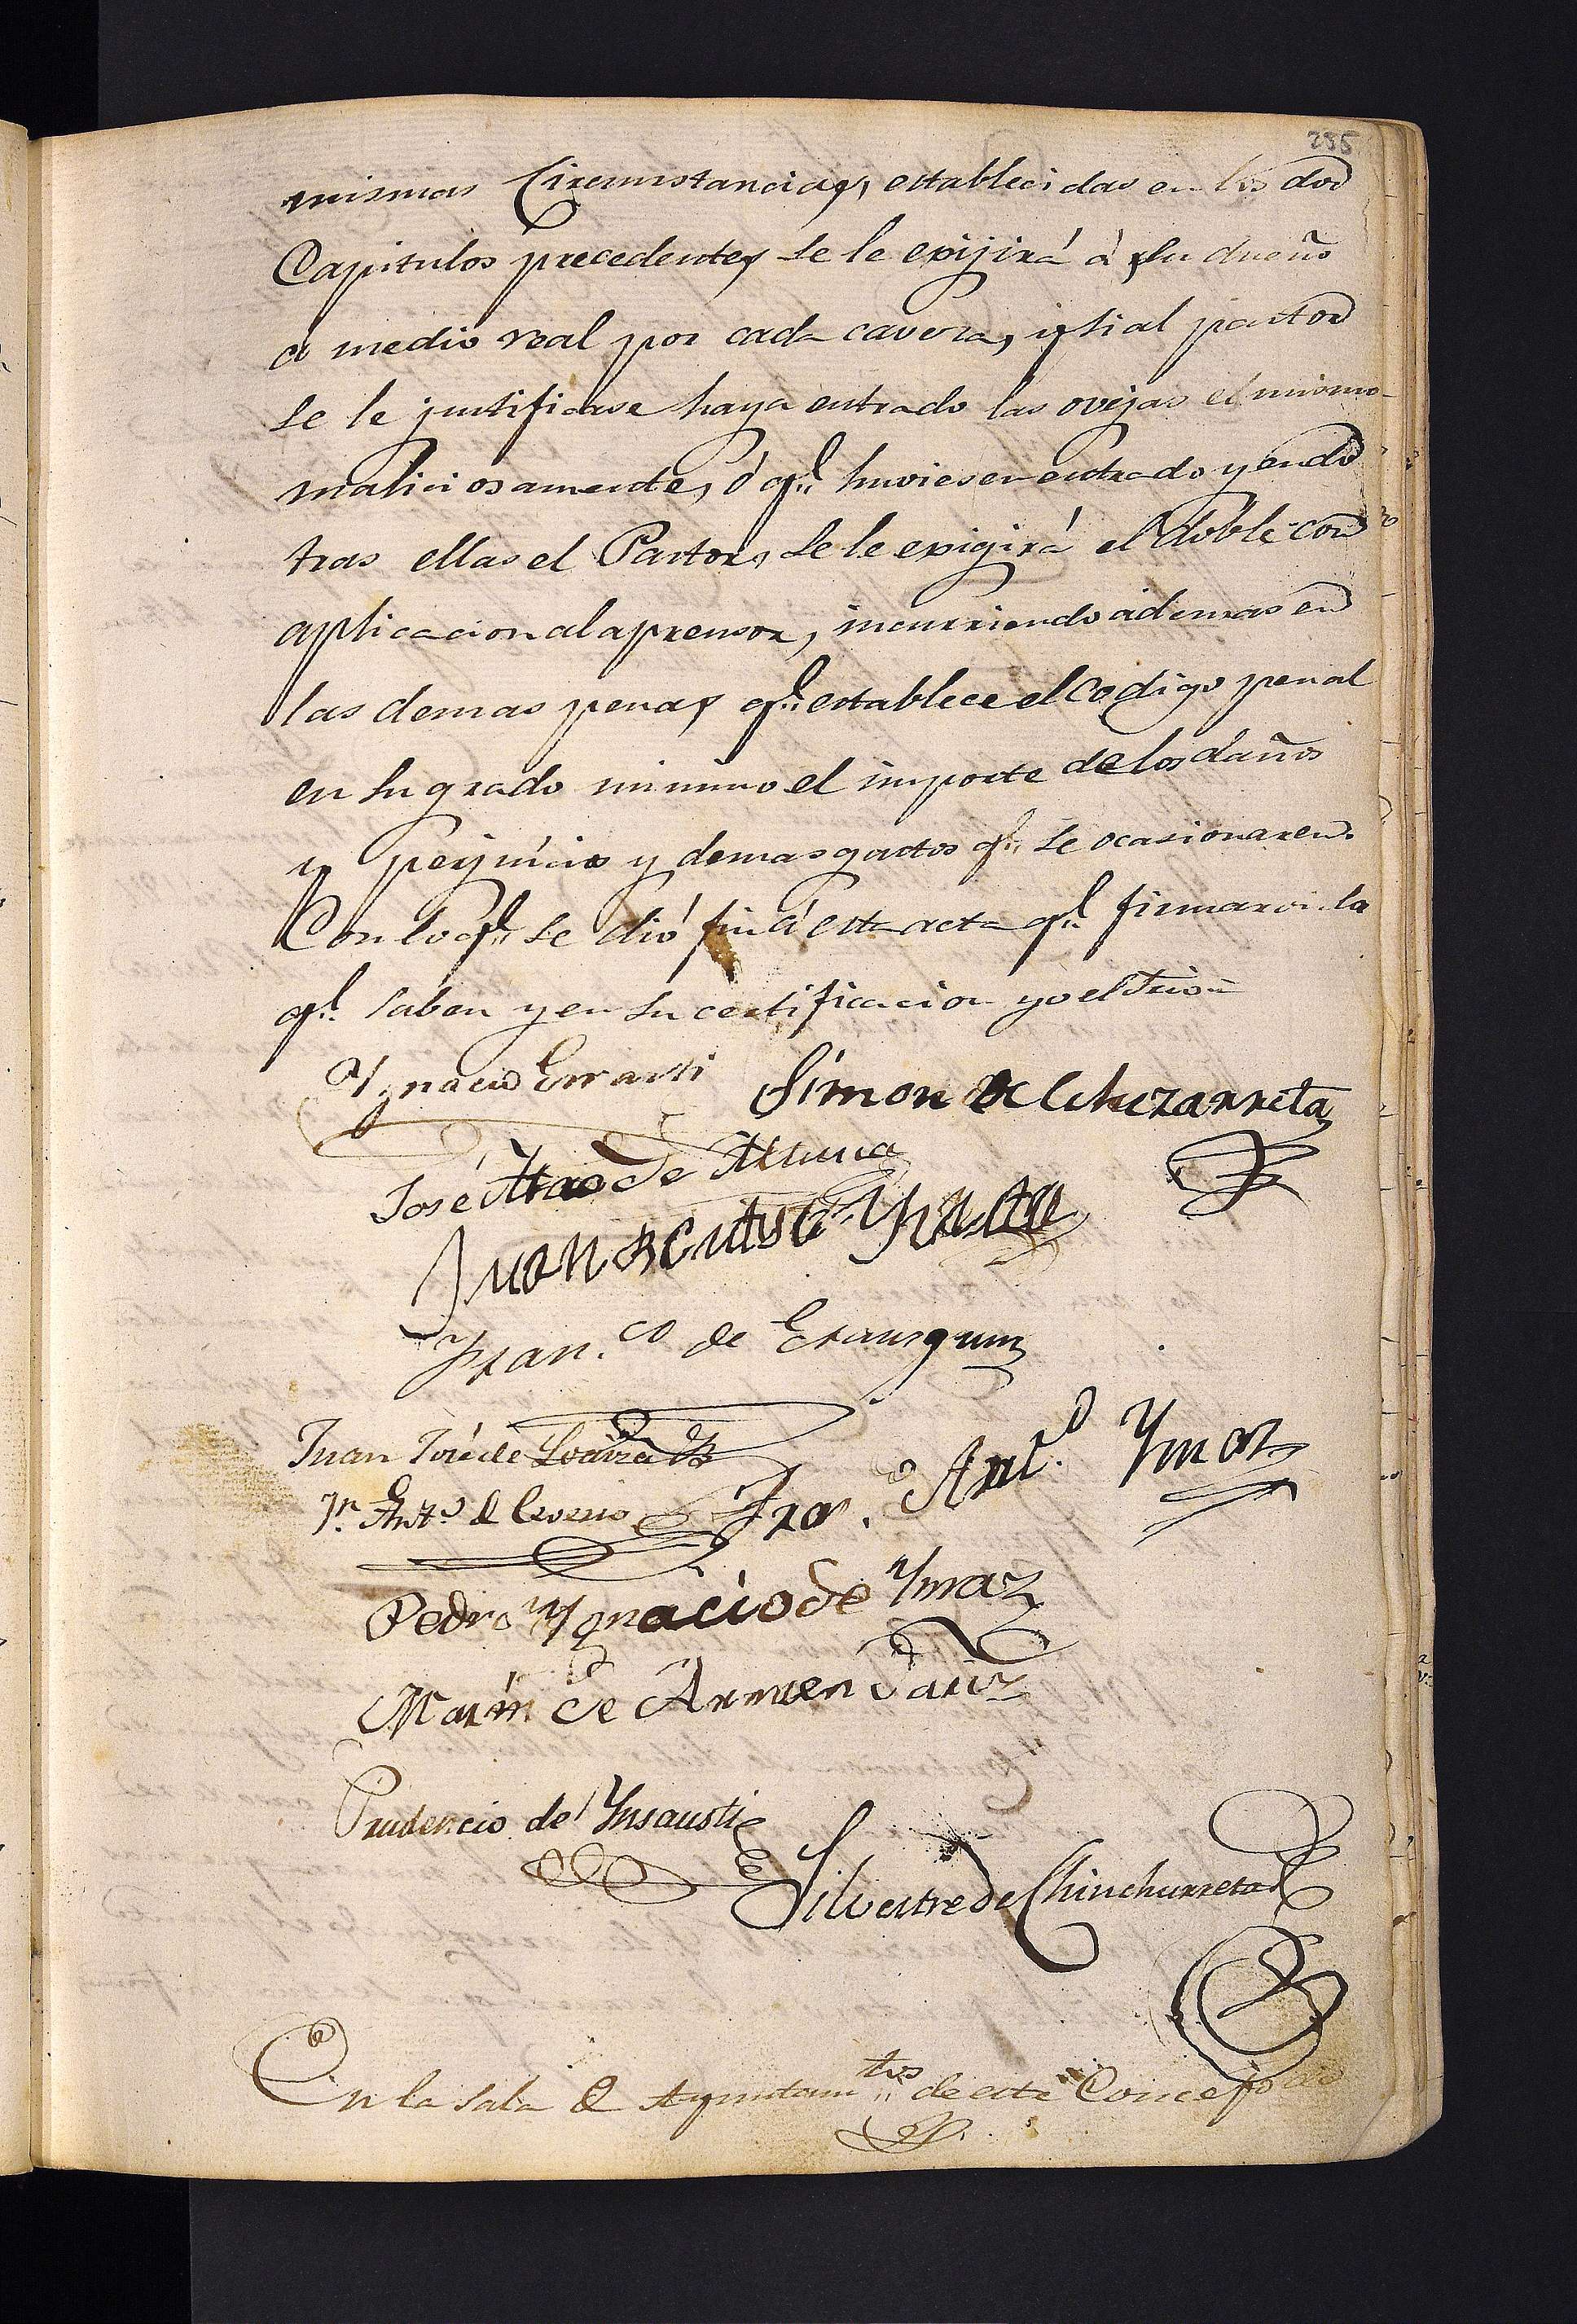 285
mismas Circumstancias, establecidas en los dos
Capitulos precedentes se le exijirá à su dueño
a medio real por cada caveza, y si al pastor
se le justificase haya entrado las ovejas el mismo
maliciosamente, ó q.e huviesen entrado yendo
tras ellas el Pastor, se le exigirá el doble con
aplicacion al aprensor, incurriendo ademas en
las demas penas q.e establece el codigo penal
en su grado minimo el importe de los daños
y perjuicios y demas gastos q.e se ocasionaren.
Con lo q.e se dió fin á esta acta q.e firmaron los
q.e saben y en su certificacion yo el Srio =
Ygnacio Errasti
Simon de Echezarreta
José de Altuna
Juan Ygnacio
Fran.co de Erausquin
Juan José de Loaiza
Jn. Ant.o de
Fran. Ant.o Ymaz
Pedro Ygnacio de Ymaz
Marín de Armendariz
Prudencio de Ynsausti
Silvestre de Chinchurreta
En la sala de Ayuntam.tos de este Concejo de